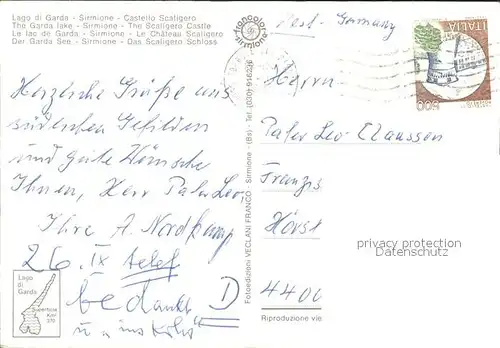 Lago di Garda - Sirmione - Castello Scaligero
The Garda lake - Sirmione - The Scaligero Castle
Le lac de Garda - Sirmione - Le Château Scaligero
Der Garda See - Sirmione - Das Scaligero Schloss
Herzliche Grüße aus
südlichen Gefilden
und gute Wünsche
Ihnen, Herr Pater Leo,
Ihre A.
26. IX telef
bedankt
Lago
di
Garda
Superficie
Km²
370
Fotoedizioni VECLANI FRANCO - Sirmione - (Bs) - Tel. (030)
francolor
sirmione
West-Germany
ITALIA
500
Herrn
Pater Leo Claussen
Franzis
Hörst
4400
D
privacy protection
Datenschutz
Riproduzione vie